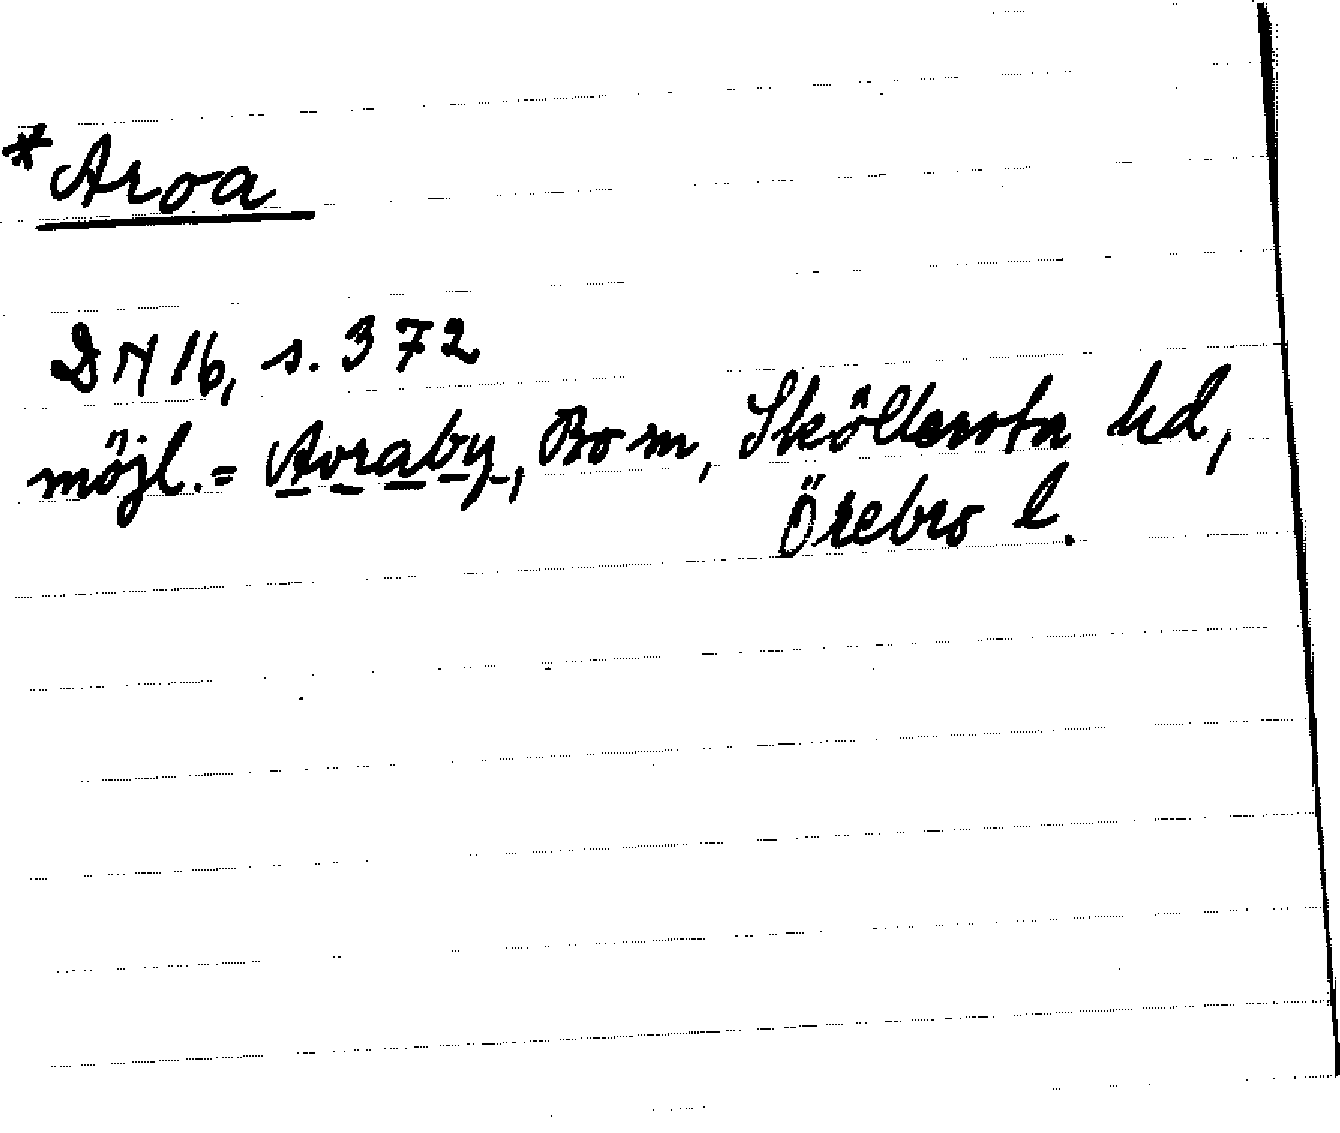 *Aroa
DN 16, s. 372
möjl. = Avraby, Bo sn, Sköllersta hd,
Örebro l.